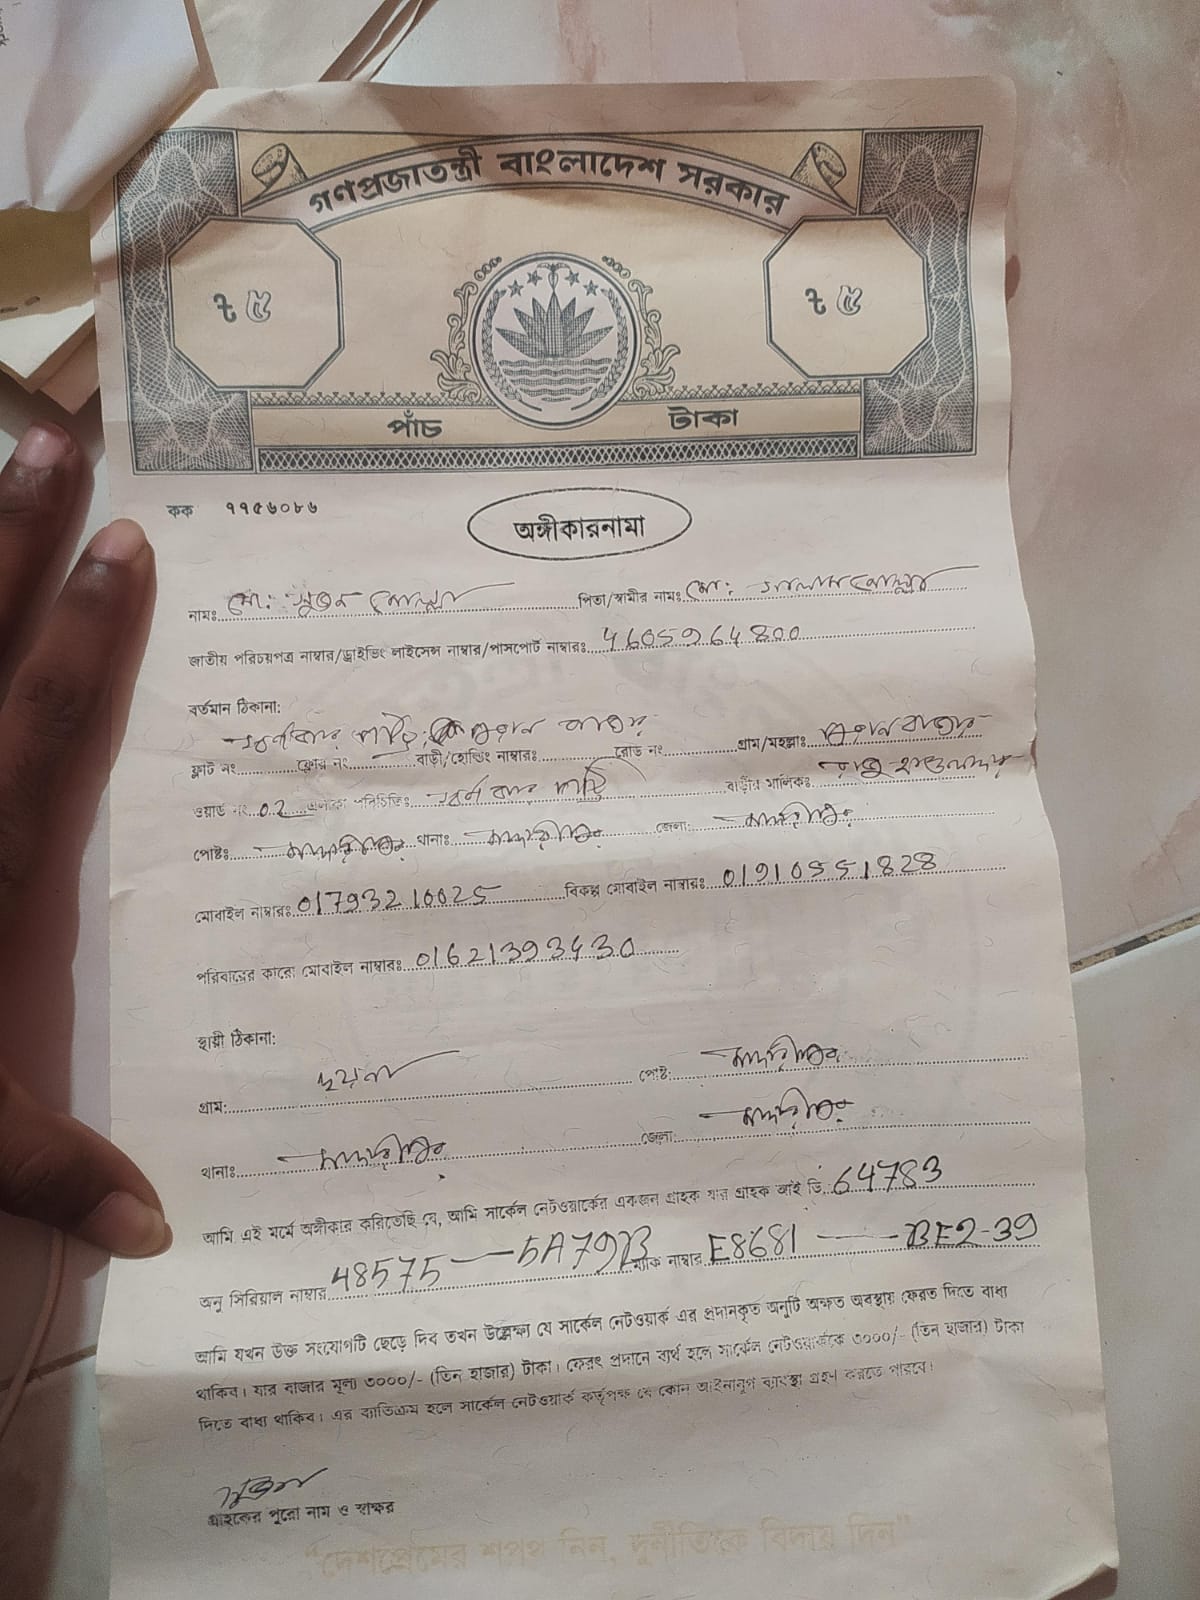 গণপ্রজাতন্ত্রী বাংলাদেশ সরকার
৳ ৫ ৳ ৫
পাঁচ টাকা
কক ৭৭৫৬০৮৬
অঙ্গীকারনামা
নামঃ মো: সুজন মোল্লা পিতা/স্বামীর নামঃ মো: সালাম মোল্লা
জাতীয় পরিচয়পত্র নাম্বার/ড্রাইভিং লাইসেন্স নাম্বার/পাসপোর্ট নাম্বারঃ 4605964800
বর্তমান ঠিকানা:
ফ্লাট নং ফ্লোর নং বাড়ী/হোল্ডিং নাম্বারঃ রোড নং গ্রাম/মহল্লাঃ
ওয়ার্ড নং 02 এলাকা পরিচিতিঃ বাড়ীর মালিকঃ
পোষ্টঃ মাদারীপুর থানাঃ মাদারীপুর জেলা: মাদারীপুর
মোবাইল নাম্বারঃ 01793210025 বিকল্প মোবাইল নাম্বারঃ 01910551828
পরিবারের কারো মোবাইল নাম্বারঃ 01621393430
স্থায়ী ঠিকানা:
গ্রাম: পোষ্ট: মাদারীপুর
থানাঃ মাদারীপুর জেলা: মাদারীপুর
আমি এই মর্মে অঙ্গীকার করিতেছি যে, আমি সার্কেল নেটওয়ার্কের একজন গ্রাহক যার গ্রাহক আই ডি: 64783
অনু সিরিয়াল নাম্বার 48575 — 5A79B ম্যাক নাম্বার E8681 — BE2-39
আমি যখন উক্ত সংযোগটি ছেড়ে দিব তখন উল্লেক্ষা যে সার্কেল নেটওয়ার্ক এর প্রদানকৃত অনুটি অক্ষত অবস্থায় ফেরত দিতে বাধ্য
থাকিব। যার বাজার মূল্য ৩০০০/- (তিন হাজার) টাকা। ফেরৎ প্রদানে ব্যর্থ হলে সার্কেল নেটওয়ার্ককে ৩০০০/- (তিন হাজার) টাকা
দিতে বাধ্য থাকিব। এর ব্যতিক্রম হলে সার্কেল নেটওয়ার্ক কর্তৃপক্ষ যে কোন আইনানুগ ব্যবস্থা গ্রহণ করতে পারবে।
সুজন
গ্রাহকের পুরো নাম ও স্বাক্ষর
“দেশপ্রেমের শপথ নিন, দুর্নীতিকে বিদায় দিন”